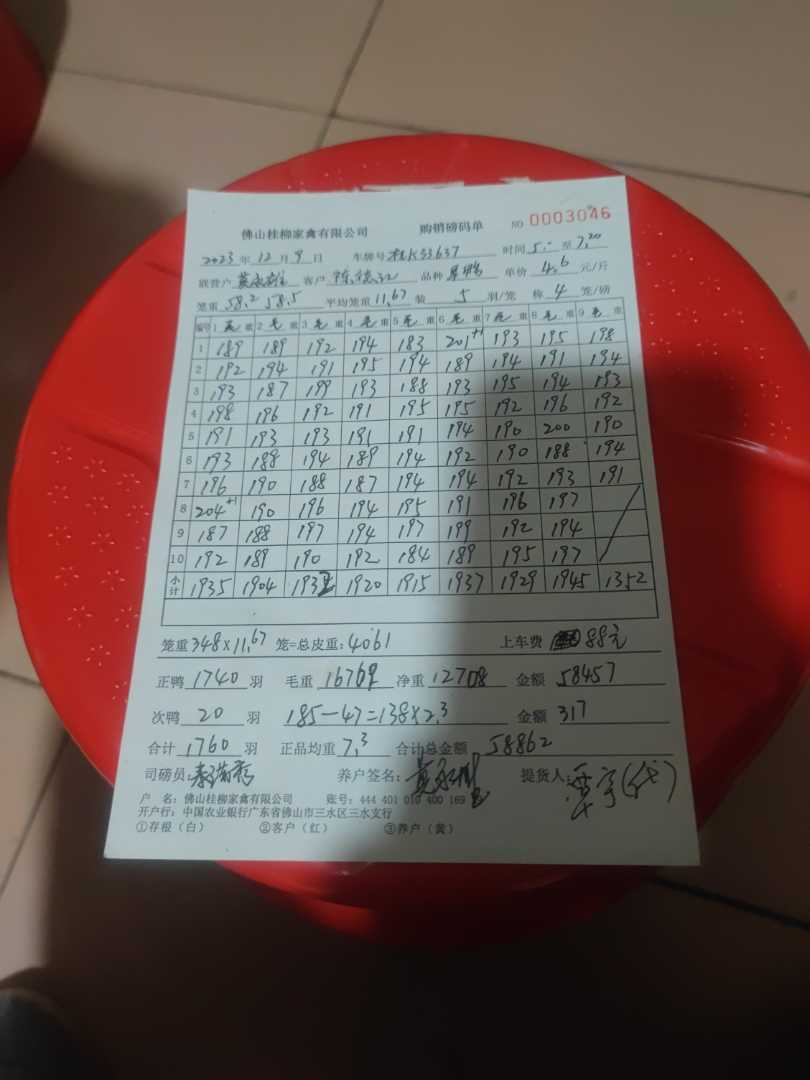 佛山桂柳家禽有限公司 购销磅码单 NO 0003046
2023 年 12 月 9 日 车牌号 桂K53637 时间 5:- 至 7,20
联营户 客户 品种 单价 4.6 元/斤
笼重 58.2 58.5 平均笼重 11.67 装 5 羽/笼 称 4 笼/磅
编号 1 毛 重 2 毛 重 3 毛 重 4 毛 重 5 毛 重 6 毛 重 7 毛 重 8 毛 重 9 毛 重
1 189 189 192 194 183 201+1 193 195 198
2 192 194 191 195 194 189 194 191 194
3 193 187 199 193 188 193 195 194 193
4 198 196 192 191 195 195 192 196 192
5 191 193 193 191 191 194 190 200 190
6 193 188 194 189 194 192 190 188 194
7 196 190 188 187 194 194 192 193 191
8 204+1 190 196 194 195 191 196 197
9 187 188 197 194 197 199 192 194
10 192 189 190 192 184 189 195 197
小计 1935 1904 1932 1920 1915 1937 1929 1945 1352
笼重 348×11.67 笼=总皮重: 4061 上车费 88元
正鸭 1740 羽 毛重 16769 净重 12708 金额 58457
次鸭 20 羽 185-47=138×2.3 金额 317
合计 1760 羽 正品均重 7.3 合计总金额 58862
司磅员: 养户签名: 提货人: 宇(代)
户 名: 佛山桂柳家禽有限公司 账号: 444 401 010 400 169
开户行: 中国农业银行广东省佛山市三水区三水支行
①存根(白) ②客户(红) ③养户(黄)